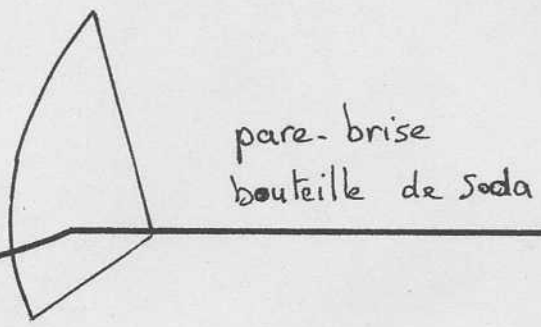 pare-brise
bouteille de Soda